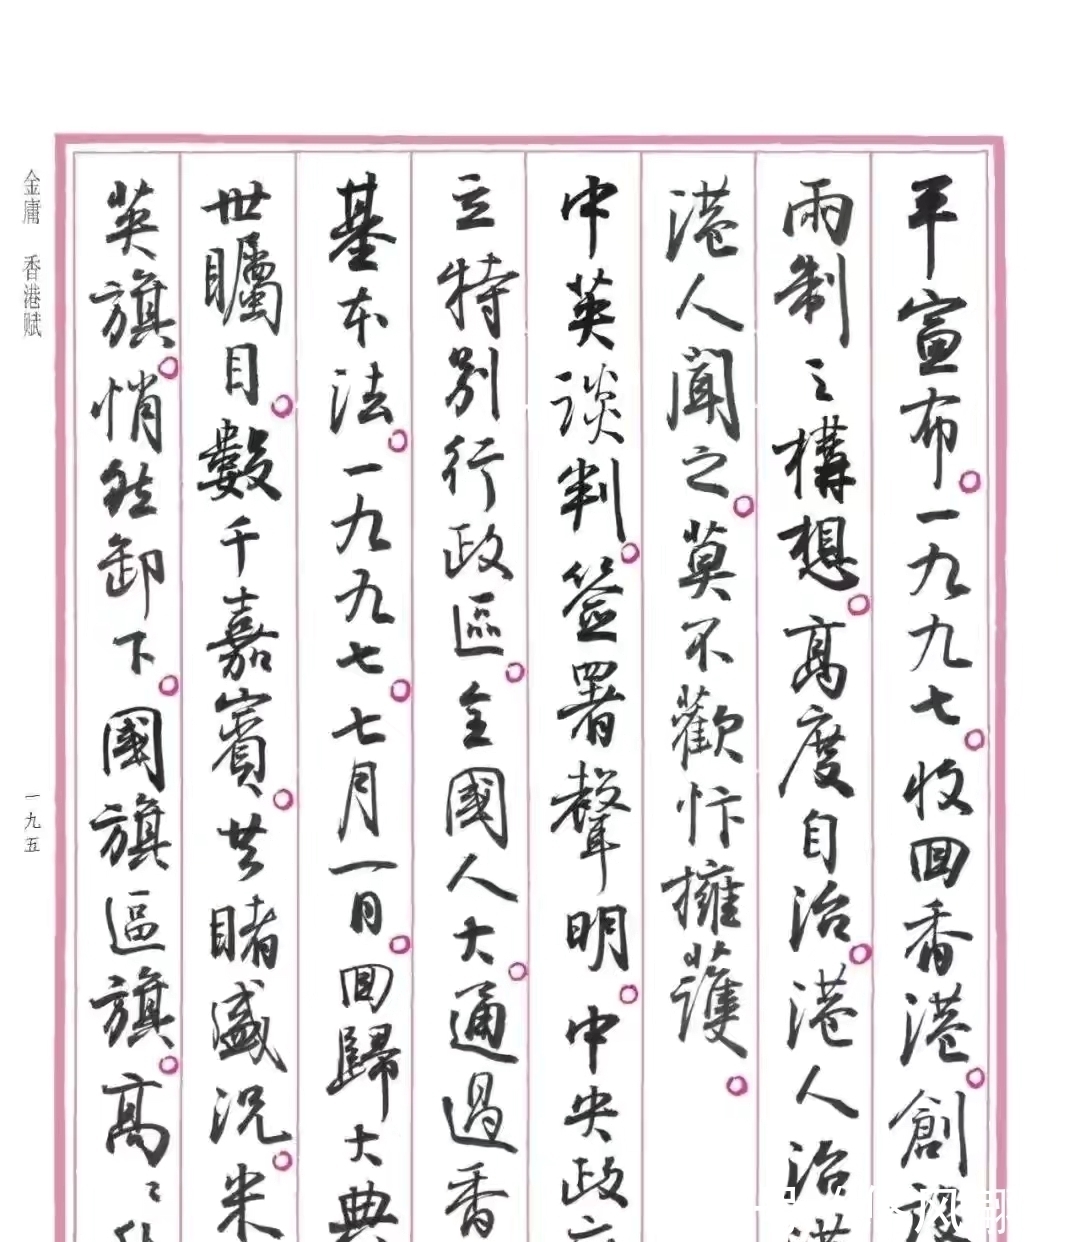 平宣布。一九九七。收回香港。創設
兩制之構想。高度自治。港人治港
港人聞之。莫不歡忭擁護。
中英談判。簽署聲明。中央政府
立特別行政區。全國人大。通過香
基本法。一九九七。七月一日。回歸大典
世矚目。數千嘉賓。共睹盛況。米
英旗。悄然卸下。國旗區旗。高〻
金庸 香港賦
一九五